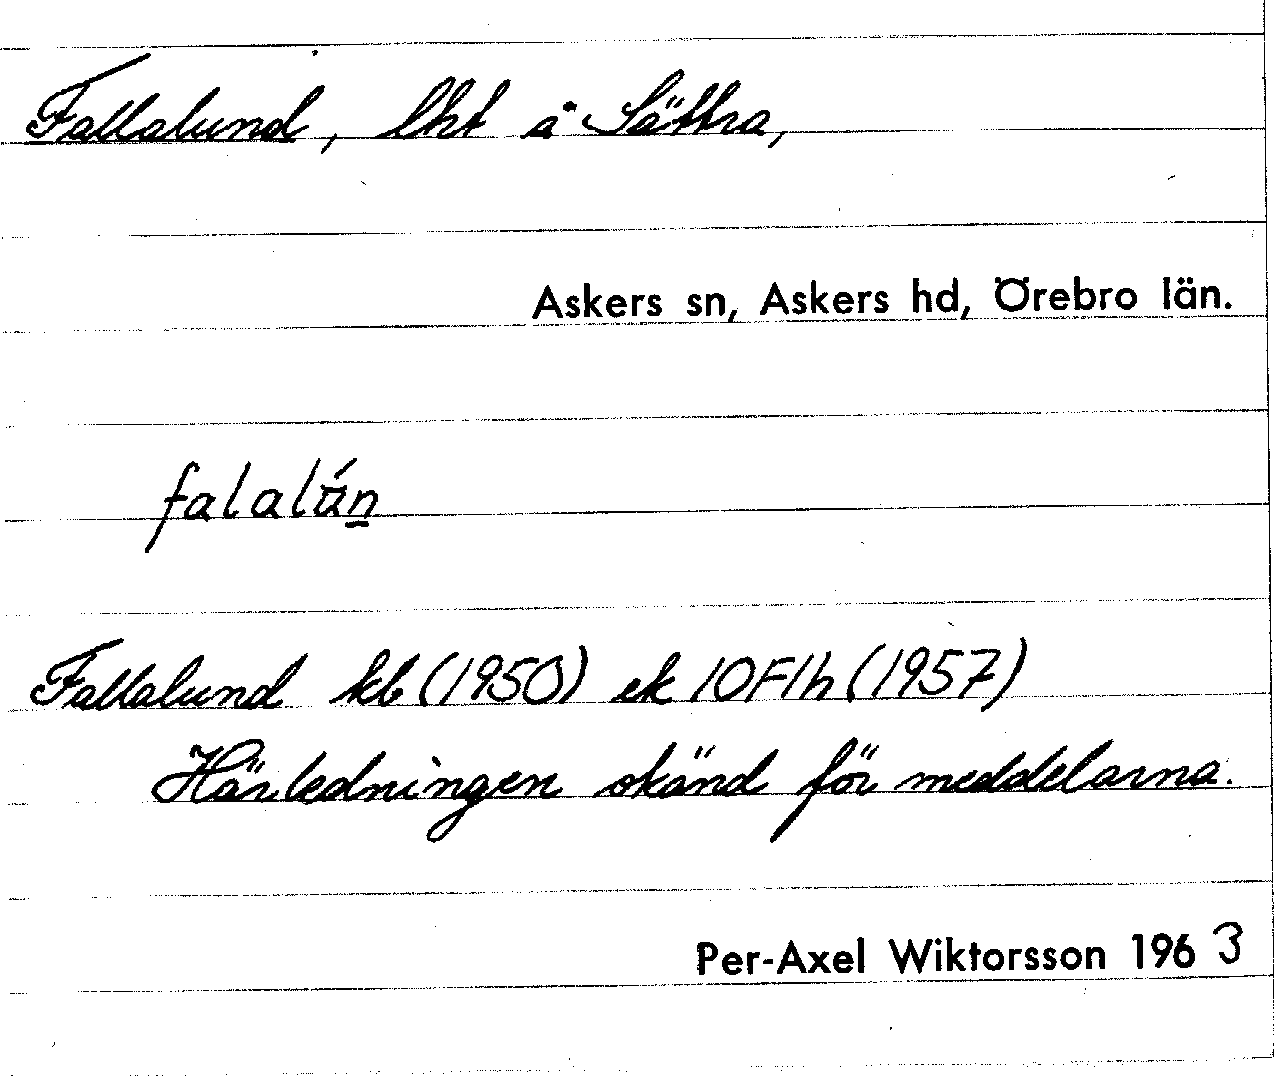 Fallalund, lht å Sättra,
Askers sn, Askers hd, Örebro län.
falalún
Fallalund kb (1950) ek 10F1h (1957)
Härledningen okänd för meddelarna.
Per-Axel Wiktorsson 1963